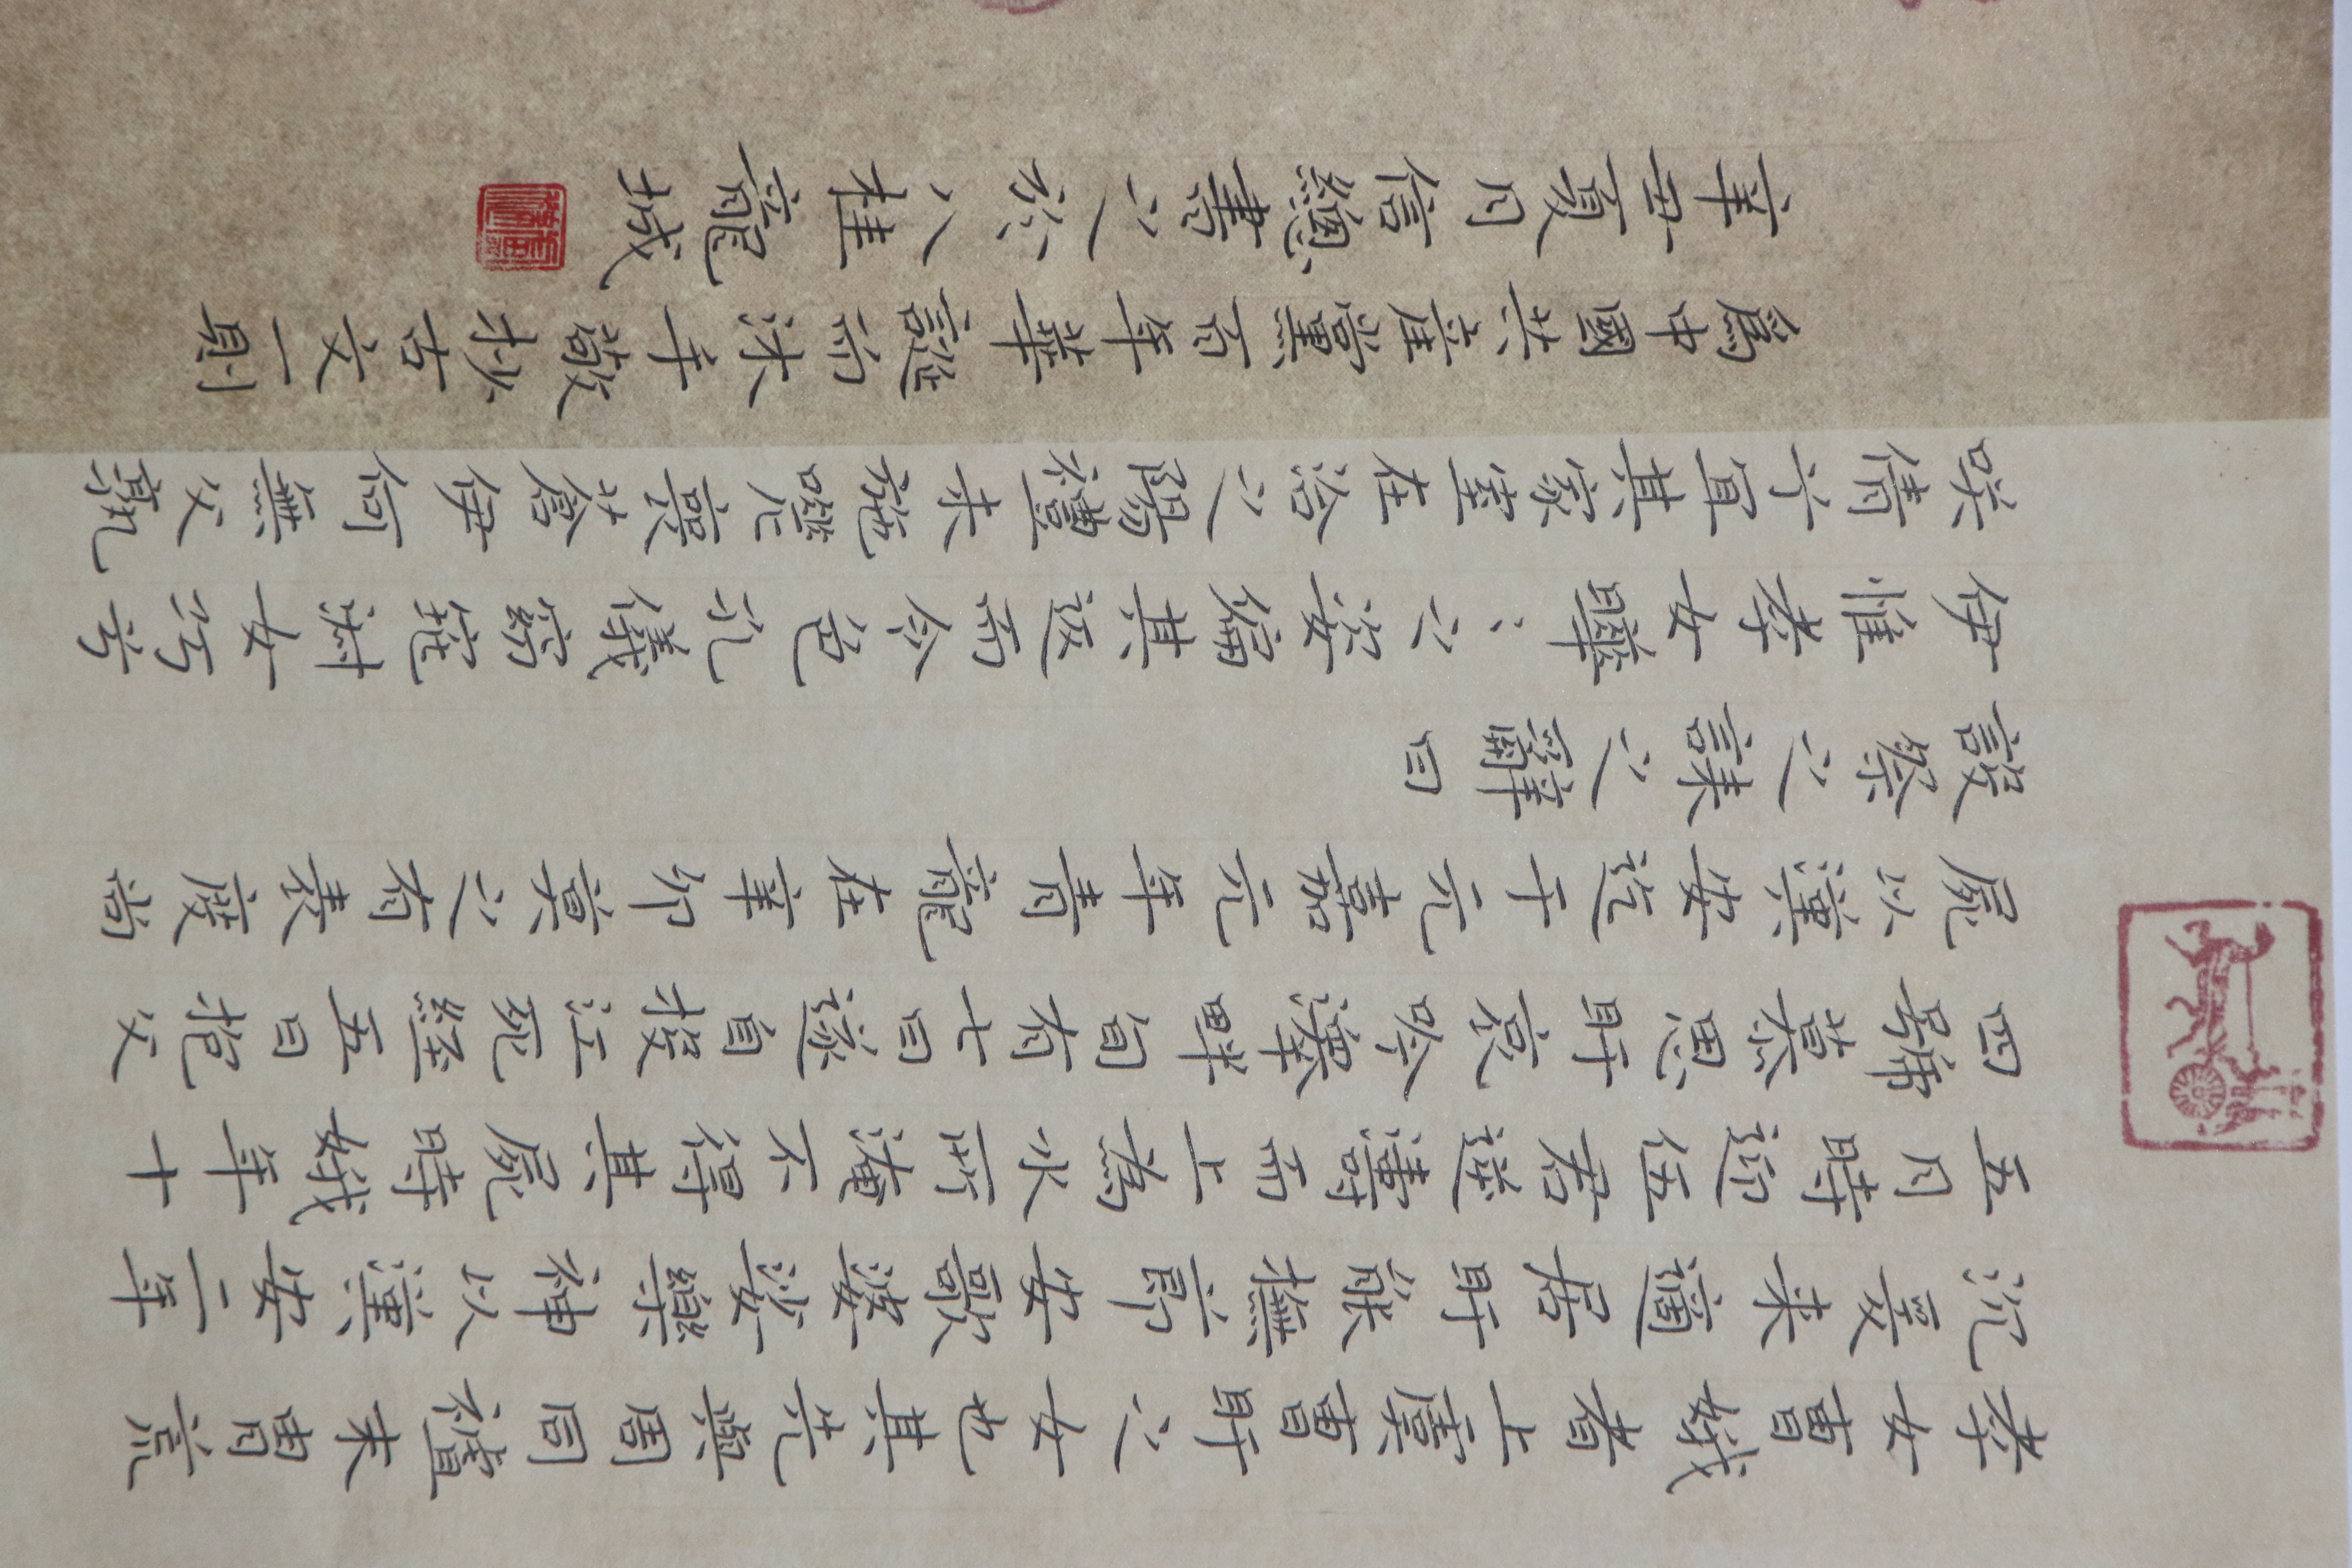 孝女曹娥者上虞曹盱之女也其先與周同祖末胄荒
沉爰来適居盱能撫節安歌婆娑樂神以漢安二年
五月時迎伍君逆濤而上為水所淹不得其屍時娥年十
四號慕思盱哀吟澤畔旬有七日遂自投江死經五日抱父
屍以漢安迄于元嘉元年青龍在辛卯莫之有表度尚
設祭之誄之辭曰
伊惟孝女曄〻之姿偏其返而令色孔儀窈窕淑女巧
咲倩兮宜其家室在洽陽之禮未施嗟喪蒼伊何無父孰
為中國共產黨百年華誕前沐手敬抄古文一則
辛丑夏月信驄書之於八桂龍城